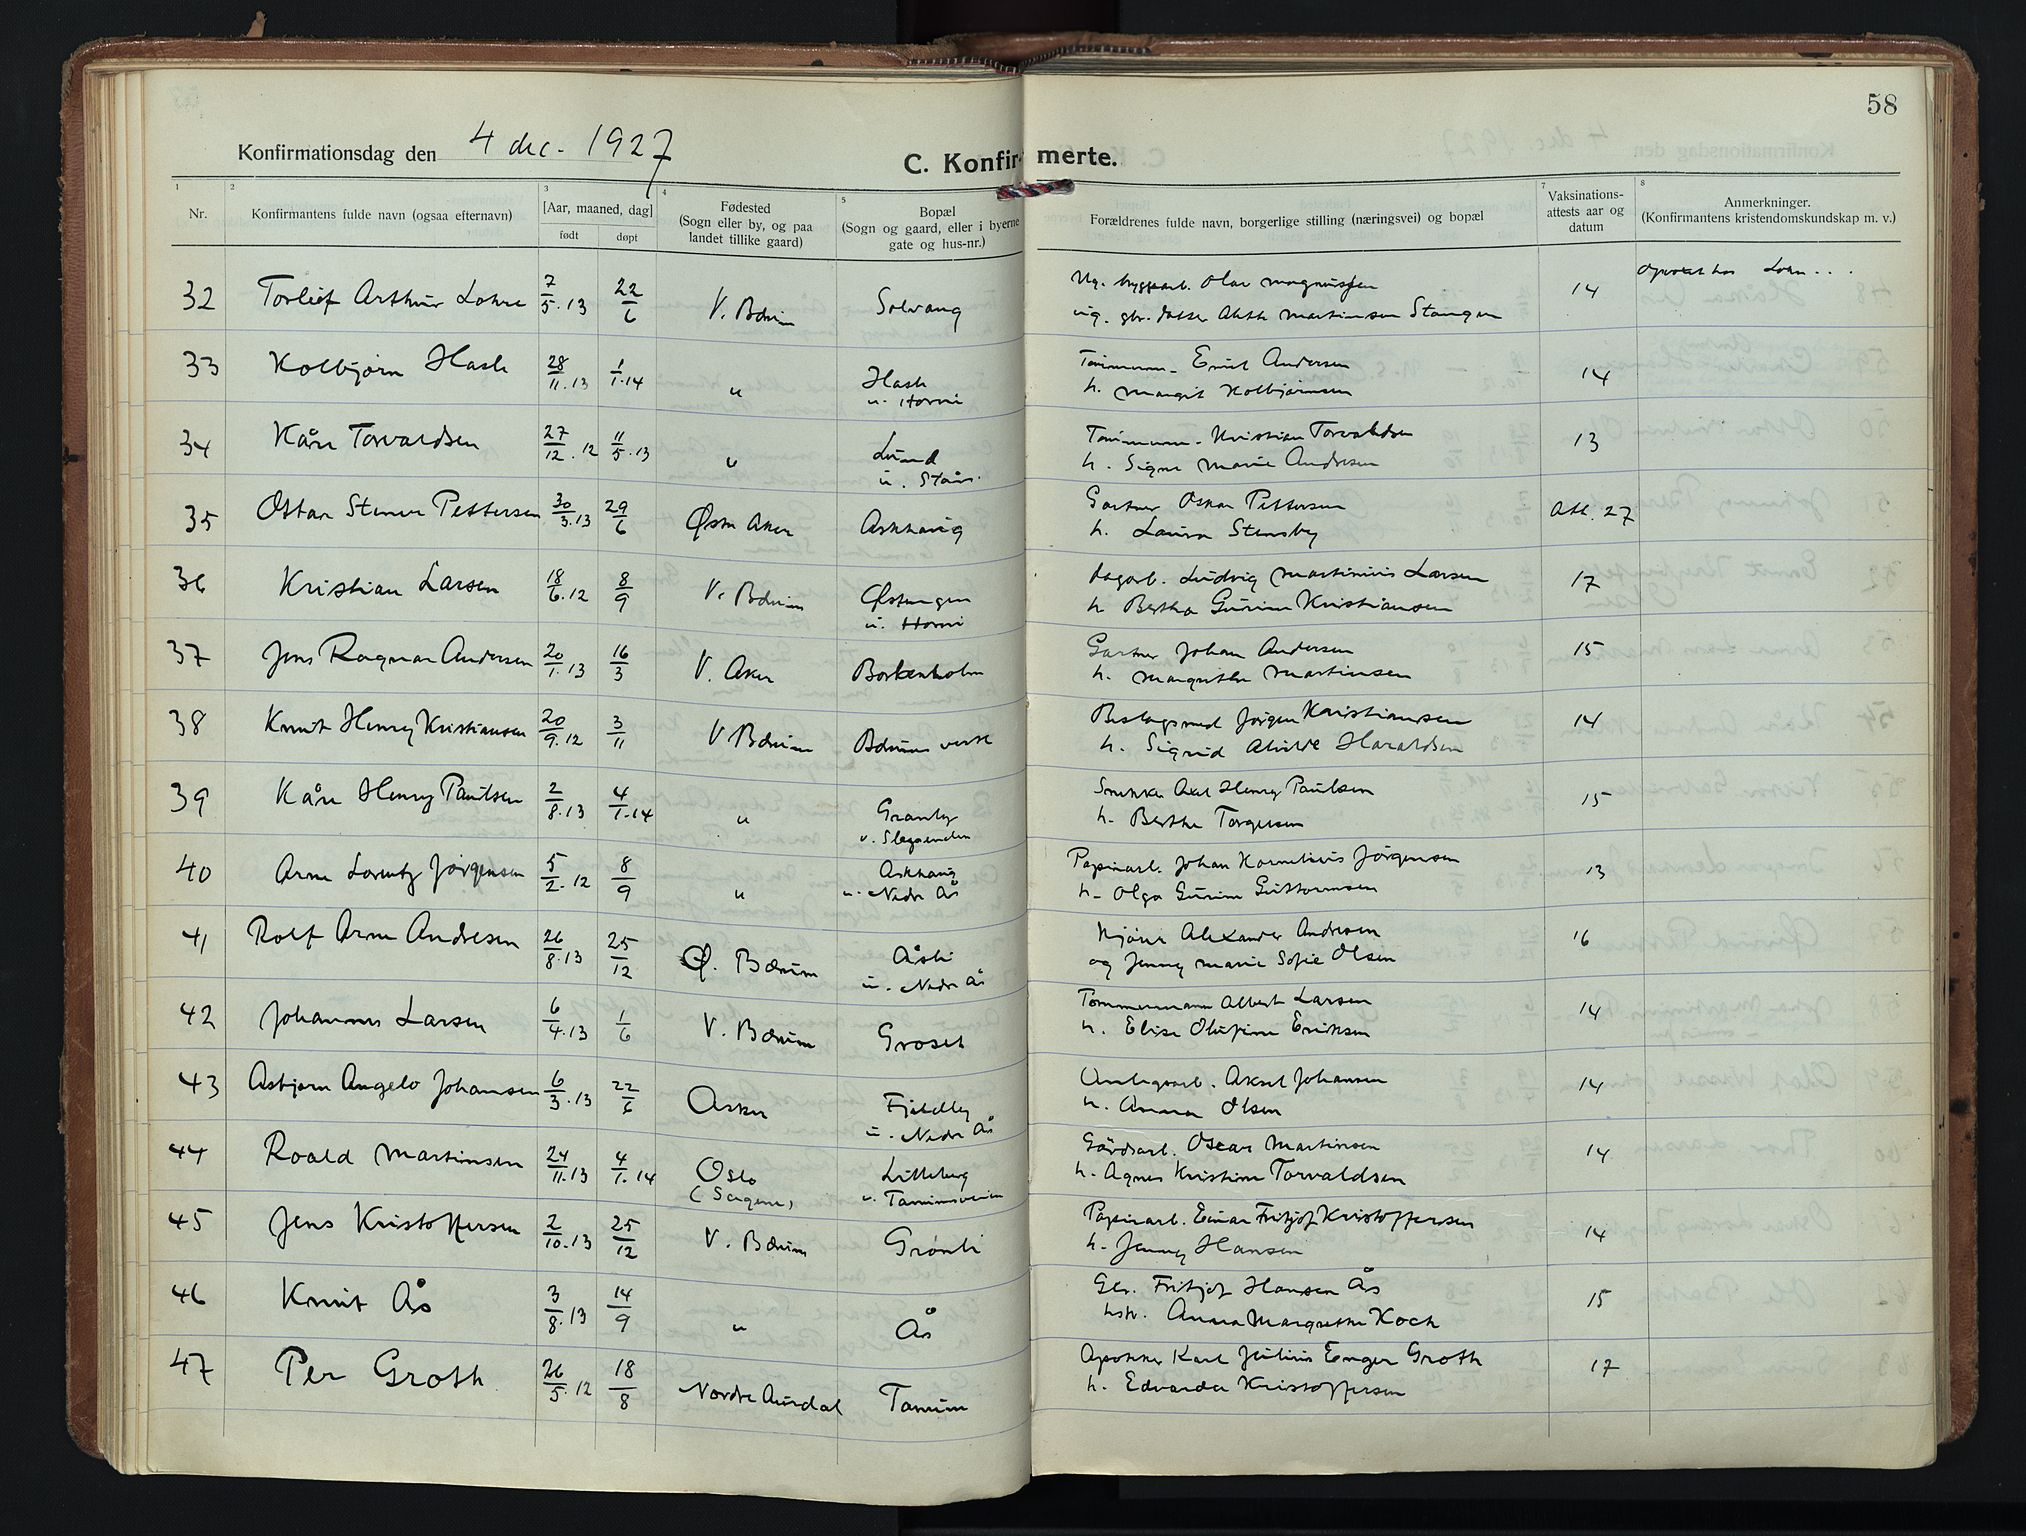 58
Konfirmationsdag den 4 dec. 1927
C. Konfirmerte.
1 2 3 4 5 7 8
Nr.
Konfirmantens fulde navn (ogsaa efternavn)
[Aar, maaned, dag]
født døpt
Fødested
(Sogn eller by, og paa
landet tillike gaard)
Bopæl
(Sogn og gaard, eller i byerne
gate og hus-nr.)
Forældrenes fulde navn, borgerlige stilling (næringsvei) og bopæl
Vaksinations-
attests aar og
datum
Anmerkninger.
(Konfirmantens kristendomskundskap m. v.)
32 Torleif Arthur Lohre 7/5.13 22/6 V. Bærum Solvang Ug. byggearb. Olav Magnussen 14
ug. gbr. datter Martinsen Stangen
33 Kolbjørn Hasle 28/11.13 1/1.14 " Hasle Emil Andersen 14
u. Horni h. Margit Kolbjørnsen
34 Kåre Torvaldsen 27/12.12 11/5.13 " Lund Kristian Torvaldsen 13
h. Signe Marie Andresen
35 Ottar Stener Pettersen 30/3.13 29/6 Østre Aker Askhaug Gartner Oskar Pettersen Att. 27
h. Laura Stensby
36 Kristian Larsen 18/6.12 8/9 V. Bærum Østungen Dagarb. Ludvig Martinius Larsen 17
u. Horni h. Bertha Gurine Kristiansen
37 Jens Ragnar Andersen 20/1.13 16/3 V. Aker Borkenholm Gartner Johan Andersen 15
h. Margrethe Martinsen
38 Knut Henry Kristiansen 20/9.12 3/11 V Bærum Bærums verk Beslagsmed Jørgen Kristiansen 14
h. Sigrid Alvilde Haraldsen
39 Kåre Henry Paulsen 2/8.13 4/1.14 " Granly Snekker Axel Henry Paulsen 15
v. Slependen h. Berthe Torgersen
40 Arne Lorentz Jørgensen 5/2.12 8/9 " Askhaug Papirarb. Johan Kornelius Jørgensen 13
u. Nedre Ås h. Olga Gurine Guttormsen
41 Rolf Arne Andresen 26/8.13 25/12 Ø. Bærum Åsli Kjører Alexander Andresen 16
u. Nedre Ås og Jenny Marie Sofie Olsen
42 Johannes Larsen 6/4.13 1/6 V. Bærum Groset Tømmermann Albert Larsen 14
h. Elise Olufine Eriksen
43 Asbjørn Angelo Johansen 6/3.13 22/6 Asker Fjeldby Anlegsarb. Aksel Johansen 14
u. Nedre Ås h. Anna Olsen
44 Roald Martinsen 24/11.13 4/1.14 Oslo Lilleberg Gårdsarb. Oscar Martinsen 14
(Sagene) v. Tanumsveien h. Agnes Kristine Torvaldsen
45 Jens Kristoffersen 2/10.13 25/12 V. Bærum Grønli Papirarb. Einar Fritjof Kristoffersen 14
h. Jenny Hansen
46 Knut Ås 3/8.13 14/9 " Ås Gbr. Fritjof Hansen Ås 15
hstr. Anna Margrethe Koch
47 Per Groth 26/5.12 18/8 Nordre Aurdal Tanum Apoteker Karl Julius Enger Groth 17
h. Edvarda Kristoffersen